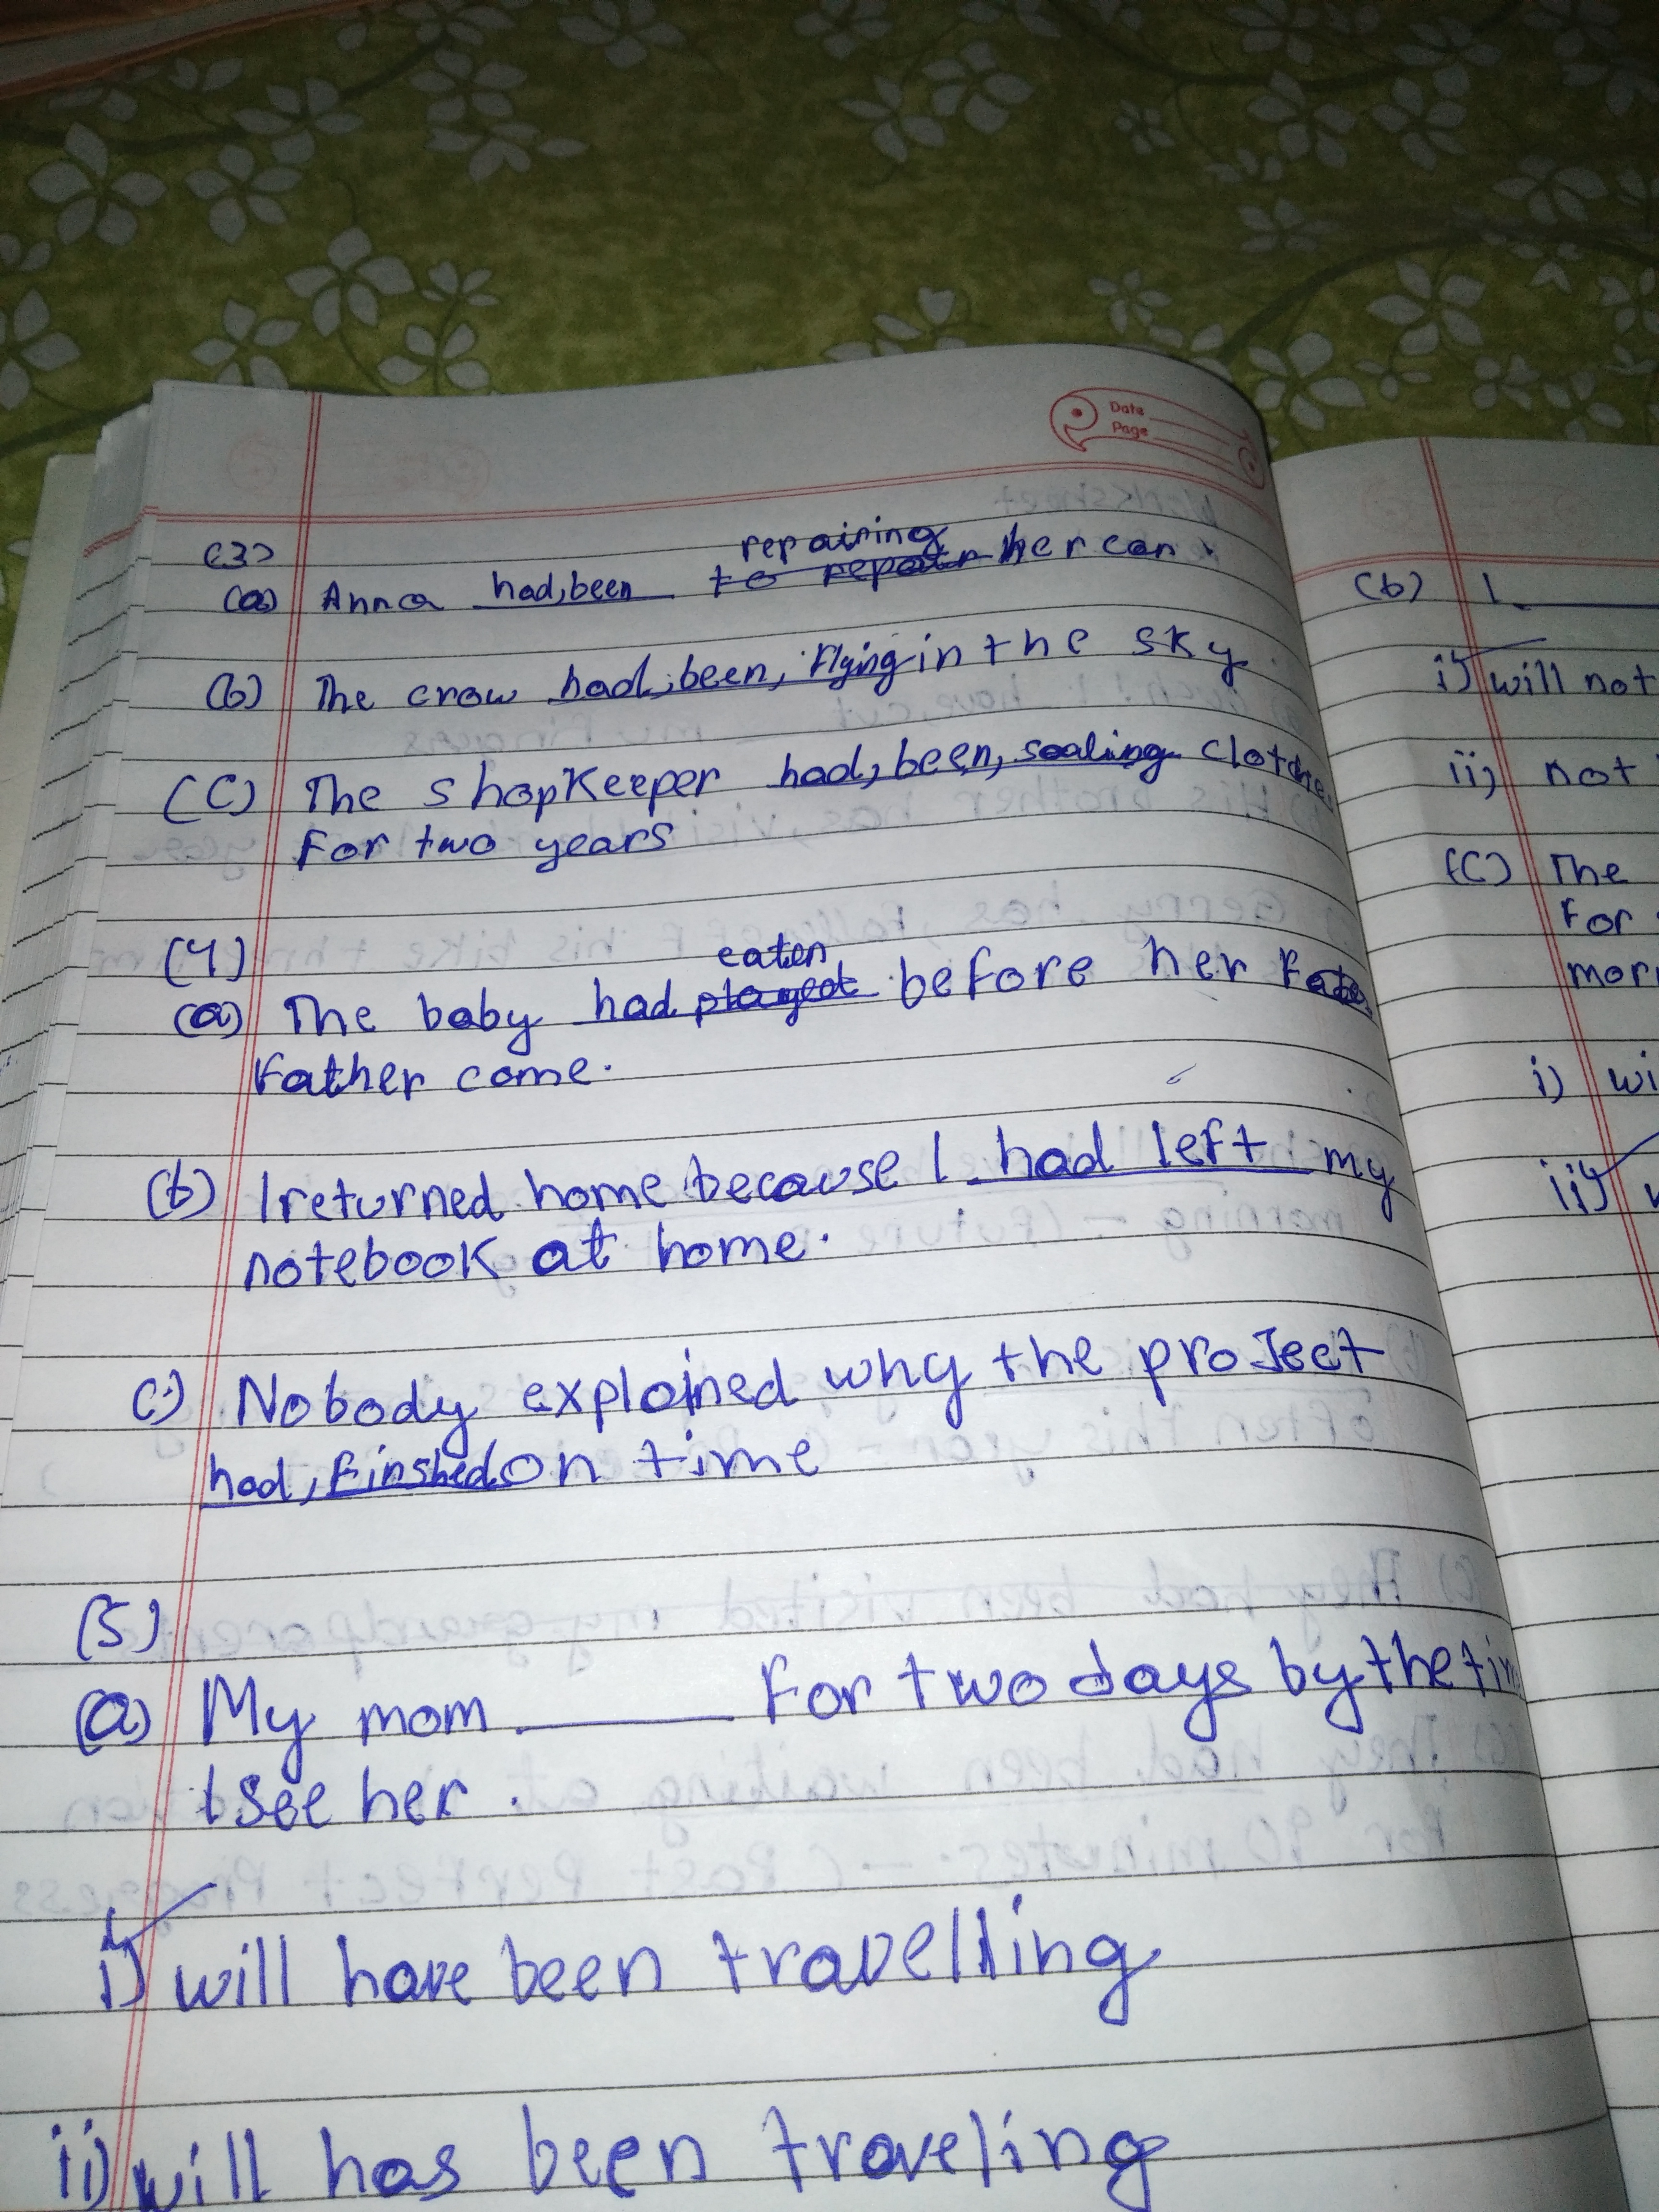 Date
Page
(3)
repairing
(a) Anna had,been to repair her car
(b) The crow had,been, Flying in the sky.
(C) The shopKeeper had,been, sealing clothes
For two years
(4)
eaten
(a) The baby had played before her
Father come.
(b) I returned home because I had left my
notebook at home.
c) Nobody explained why the proJect
had, Finshed on time
(5)
(a) My mom ______ For two days by the tim
I see her.
i) will have been travelling
ii) will has been traveling
(b) I ______
i) will not
ii) not
(C) The
For
mor
i) wi
ii)